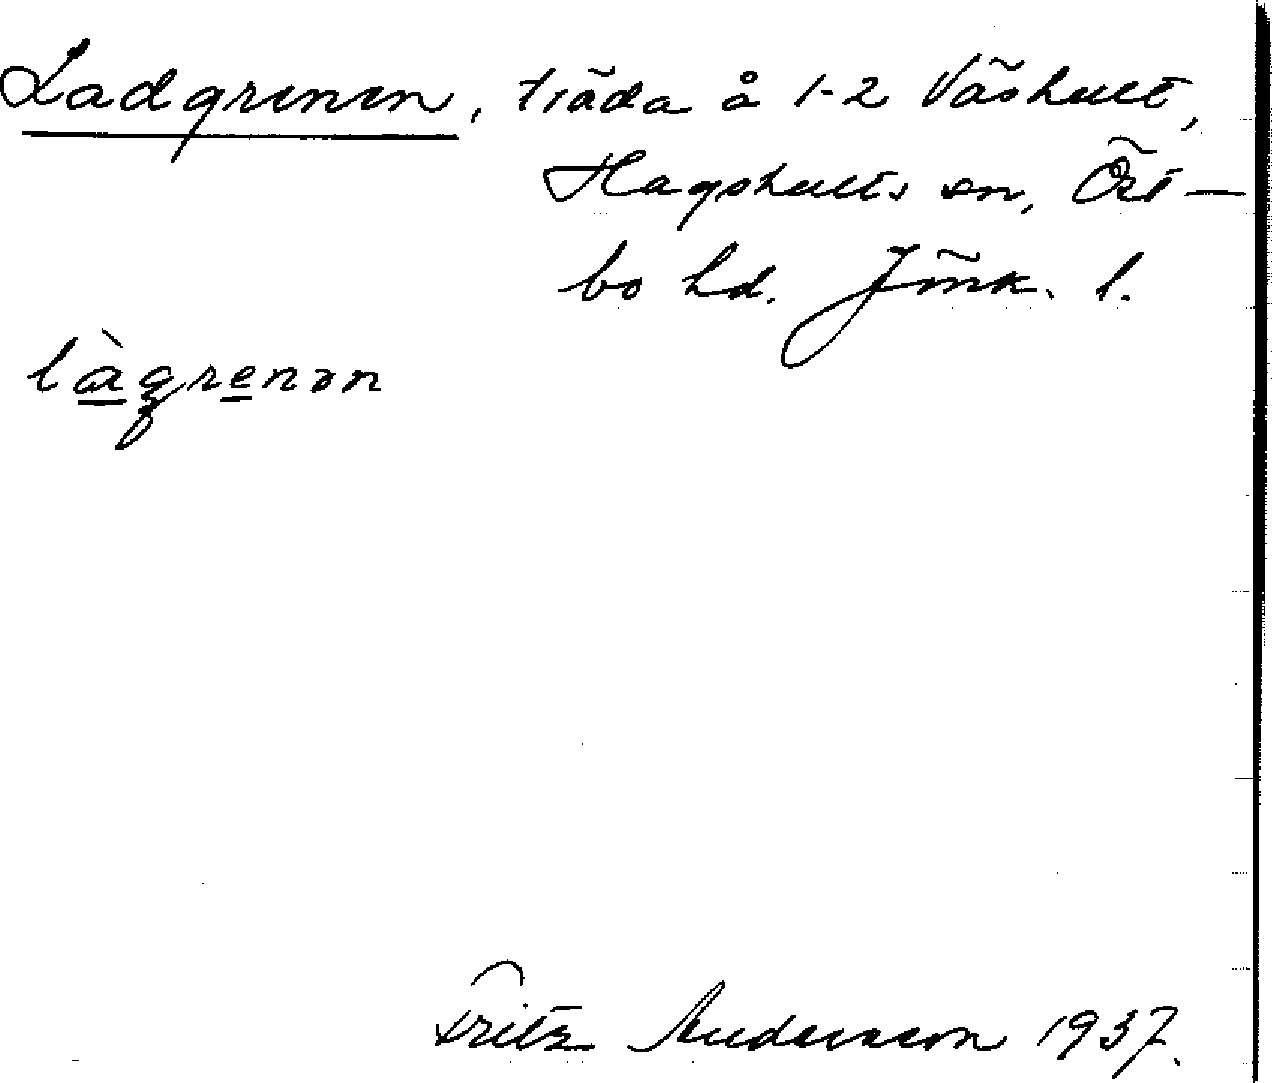 Ladgrenen, träda å 1-2 Väshult,
Hagshults sn, Öst-
bo hd. Jönk. l.
làgrenən
Fritz Andersson 1937.